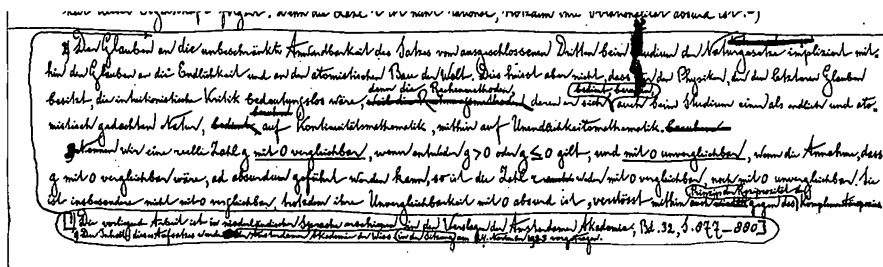 2) Der Glauben an die unbeschränkte Anwendbarkeit des Satzes vom ausgeschlossenen Dritten beim Studium der Naturgesetze impliziert mit-
hin den Glauben an die Endlichkeit und an den atomistischen Bau der Welt. Dies heisst aber nicht, dass für den Physiker, der den letzteren Glauben
besitzt, die intuitionistische Kritik bedeutungslos wäre, denn die Rechenmethoden, deren er sich auch beim Studium einer als endlich und ato-
mistisch gedachten Natur, bedient, beruhen auf Kontinuitätsmathematik, mithin auf Unendlichkeitsmathematik.
Nennen wir eine reelle Zahl g mit 0 vergleichbar, wenn entweder g > 0 oder g ≤ 0 gilt, und mit 0 unvergleichbar, wenn die Annahme, dass
g mit 0 vergleichbar wäre, ad absurdum geführt werden kann, so ist die Zahl r weder mit 0 vergleichbar, noch mit 0 unvergleichbar. Sie
ist insbesondere nicht mit 0 vergleichbar, trotzdem ihre Unvergleichbarkeit mit 0 absurd ist, verstösst mithin gegen das Prinzip der Reziprozität der Komplementärspezies
1) Die vorliegende Arbeit ist in niederländischer Sprache erschienen in den Verslagen der Amsterdamer Akademie, Bd. 32, S. 877–880]
Der Inhalt dieses Aufsatzes wurde der Amsterdamer Akademie der Wiss. in der Sitzung am November 1923 vorgetragen.